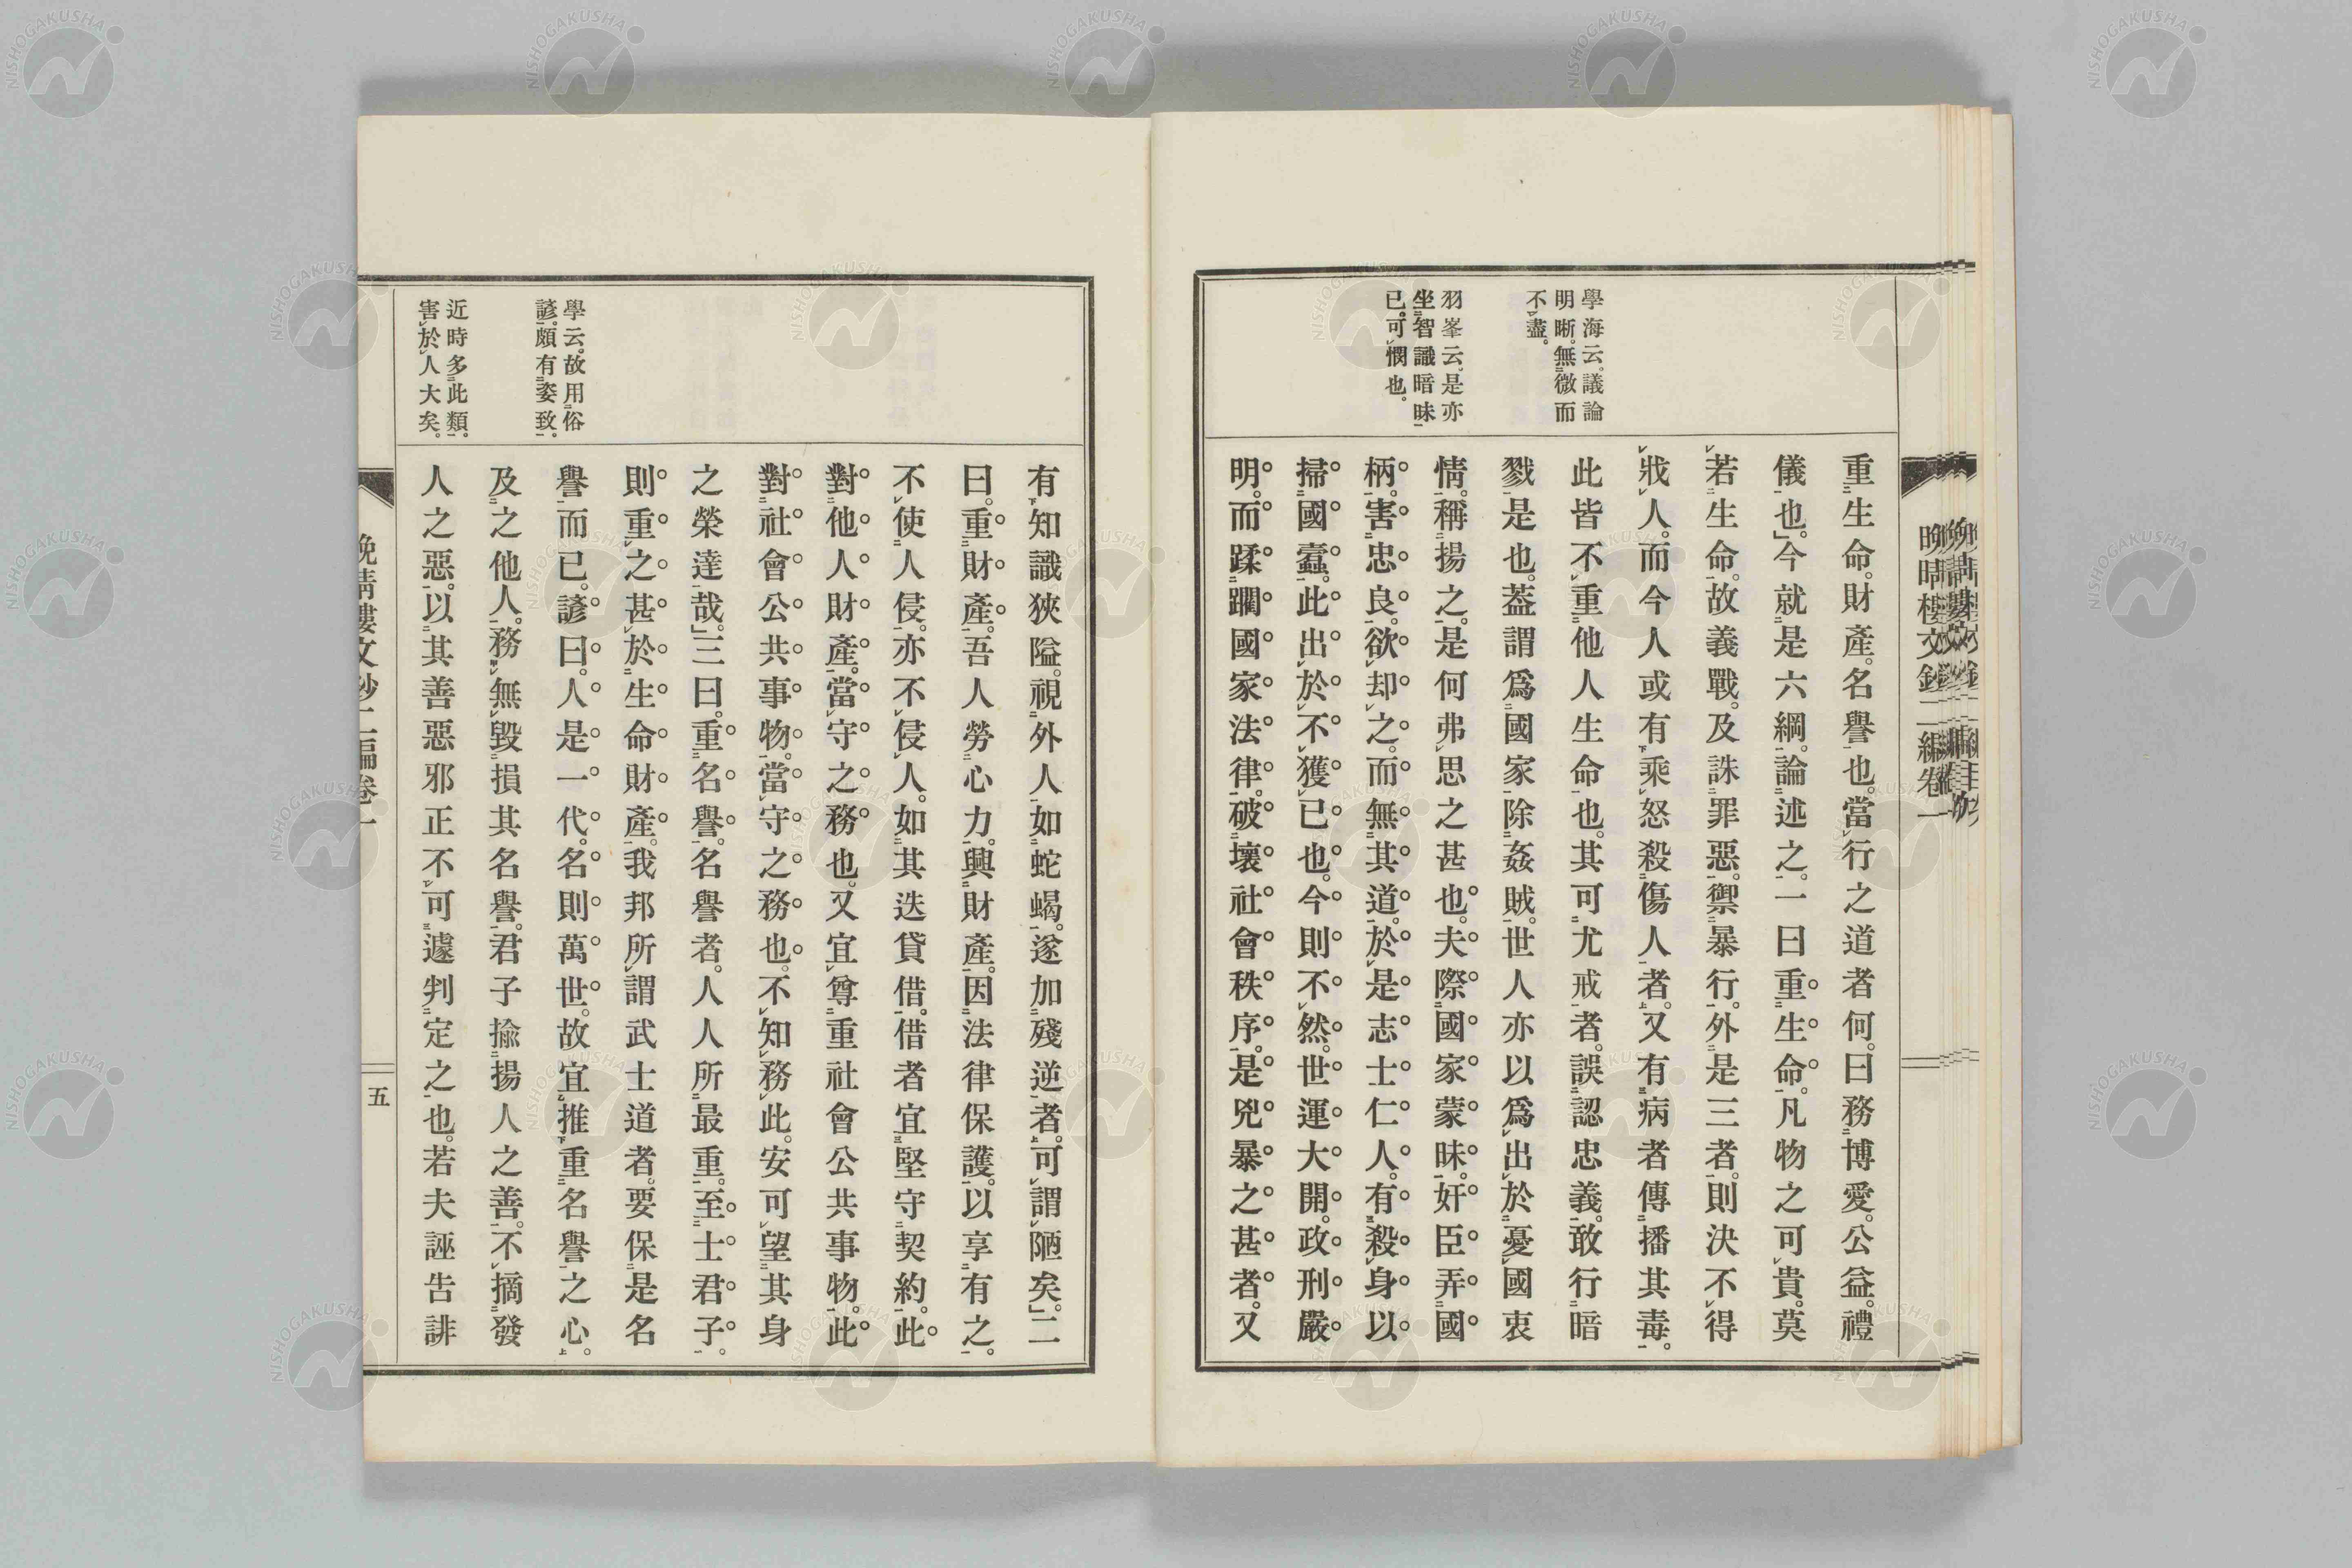 晩晴樓文鈔二編卷一
學海云。議論
明晰。無微而
不盡。
羽峯云。是亦
坐智識暗昧
已。可憫也。
重生命。財產。名譽也。當行之道者何。曰務博愛。公益。禮
儀也。」今就是六綱。論述之。一曰重生命。凡物之可貴。莫
若生命。故義戰。及誅罪惡。禦暴行。外是三者。則決不得
戕人。而今人或有乘怒殺傷人者。又有病者傳播其毒。
此皆不重他人生命也。其可尤戒者。誤認忠義。敢行暗
戮是也。蓋謂爲國家除姦賊。世人亦以爲出於憂國衷
情。稱揚之。是何弗思之甚也。夫際國家蒙昧。奸臣弄國
柄。害忠良。欲却之。而無其道。於是志士仁人。有殺身以
掃國蠹。此出於不獲已也。今則不然。世運大開。政刑嚴
明。而蹂躙國家法律。破壞社會秩序。是兇暴之甚者。又
有知識狹隘。視外人如蛇蝎。遂加殘逆者。可謂陋矣。」二
曰。重財產。吾人勞心力。興財產。因法律保護。以享有之。
不使人侵。亦不侵人。如其迭貸借。借者宜堅守契約。此
對他人財產。當守之務也。又宜尊重社會公共事物。此
對社會公共事物。當守之務也。不知務此。安可望其身
之榮達哉。」三曰。重名譽。名譽者。人人所最重。至士君子。
則重之甚於生命財產。我邦所謂武士道者。要保是名
譽而已。諺曰。人是一代。名則萬世。故宜推重名譽之心。
及之他人。務無毀損其名譽。君子揄揚人之善。不摘發
人之惡。以其善惡邪正不可遽判定之也。若夫誣告誹
學云。故用俗
諺。頗有姿致。
近時多此類。
害於人大矣。
晩晴樓文鈔二編卷一
五